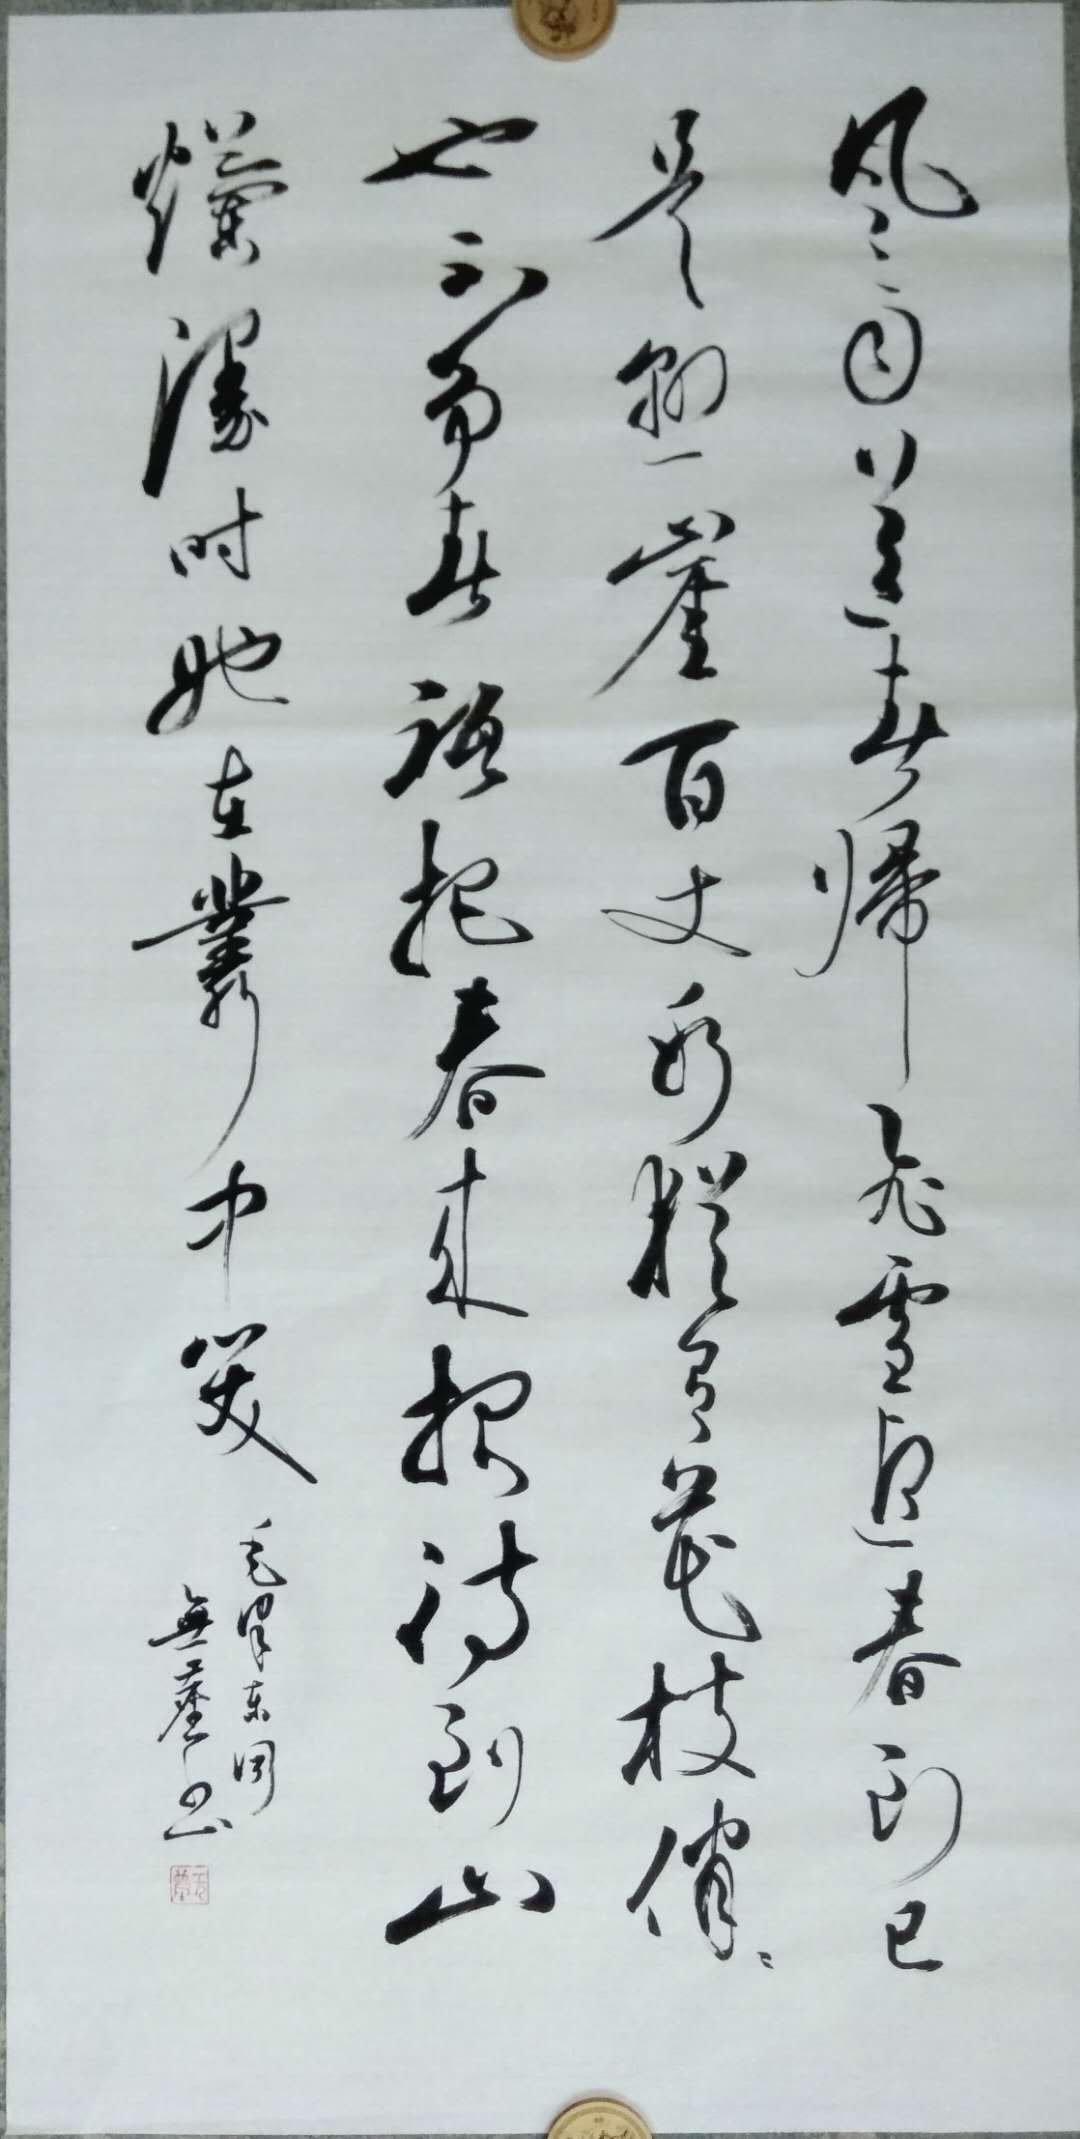 风雨送春帰飛雪迎春到已
是懸崖百丈冰犹有花枝俏〻
也不争春祗把春来报待到山
爛漫时她在叢中笑
毛泽东词
無塵书